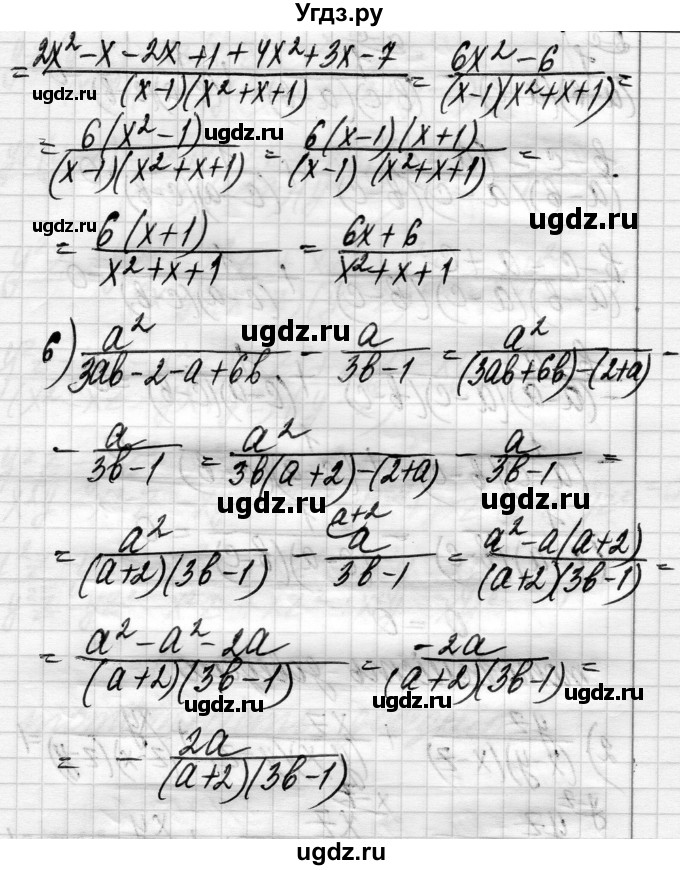 Угдз.ру
= (2x² - x - 2x + 1 + 4x² + 3x - 7)/((x-1)(x²+x+1)) = (6x² - 6)/((x-1)(x²+x+1)) =
ugdz.ru ugdz.ru
= 6(x² - 1)/((x-1)(x²+x+1)) = 6(x-1)(x+1)/((x-1)(x²+x+1)) =
ugdz.ru
ugdz.ru ugdz.ru
= 6(x+1)/(x²+x+1) = (6x+6)/(x²+x+1)
ugdz.ru ugdz.ru
6) a²/(3ab-2-a+6b) - a/(3b-1) = a²/((3ab+6b)-(2+a)) -
- a/(3b-1) = a²/(3b(a+2)-(2+a)) - a/(3b-1) =
ugdz.ru ugdz.ru
a+2
= a²/((a+2)(3b-1)) - a/(3b-1) = (a²-a(a+2))/((a+2)(3b-1)) =
= (a²-a²-2a)/((a+2)(3b-1)) = -2a/((a+2)(3b-1)) =
ugdz.ru ugdz.ru
= - 2a/((a+2)(3b-1))
ugdz.ru